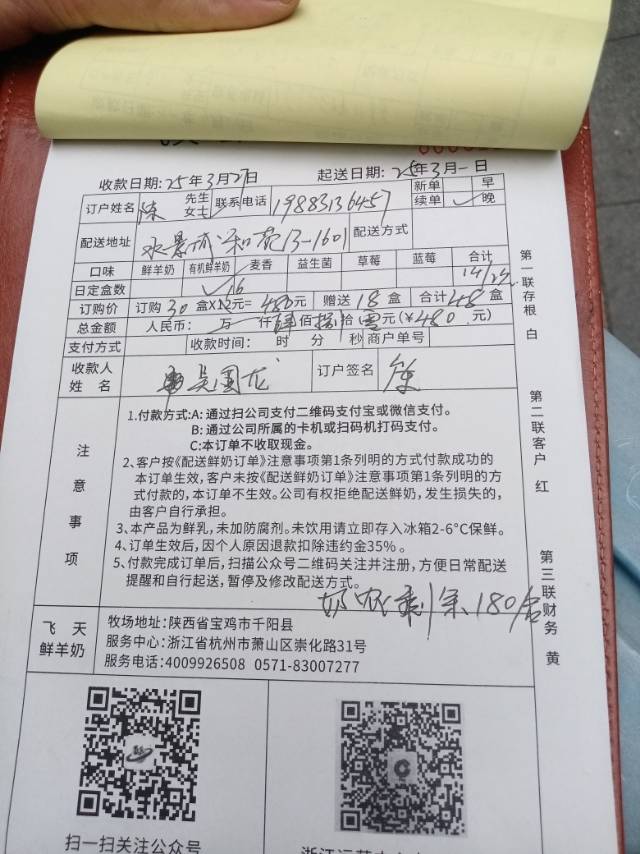 收款日期:25年3月27日 起送日期:25年3月-日
订户姓名 陈 先生 女士 联系电话 19883136457 新单 续单 ✓ 早 晚
配送地址 13-1601 配送方式
口味 鲜羊奶 有机鲜羊奶 麦香 益生菌 草莓 蓝莓 合计
日定盒数 16
订购价 订购30盒X 元=480元 赠送18盒 合计48盒
总金额 人民币: 万 仟肆佰捌拾零元(¥480元)
支付方式 收款时间: 时 分 秒 商户单号
收款人姓名 吴国龙 订户签名
注意事项
1.付款方式:A:通过扫公司支付二维码支付宝或微信支付。
B:通过公司所属的卡机或扫码机打码支付。
C:本订单不收取现金。
2、客户按《配送鲜奶订单》注意事项第1条列明的方式付款成功的
本订单生效,客户未按《配送鲜奶订单》注意事项第1条列明的方
式付款的,本订单不生效。公司有权拒绝配送鲜奶,发生损失的,
由客户自行承担。
3、本产品为鲜乳,未加防腐剂。未饮用请立即存入冰箱2-6°C保鲜。
4、订单生效后,因个人原因退款扣除违约金35%。
5、付款完成订单后,扫描公众号二维码关注并注册,方便日常配送
提醒和自行起送,暂停及修改配送方式。
剩余180
飞天鲜羊奶
牧场地址:陕西省宝鸡市千阳县
服务中心:浙江省杭州市萧山区崇化路31号
服务电话:4009926508 0571-83007277
第一联存根 白
第二联客户 红
第三联财务 黄
扫一扫关注公众号